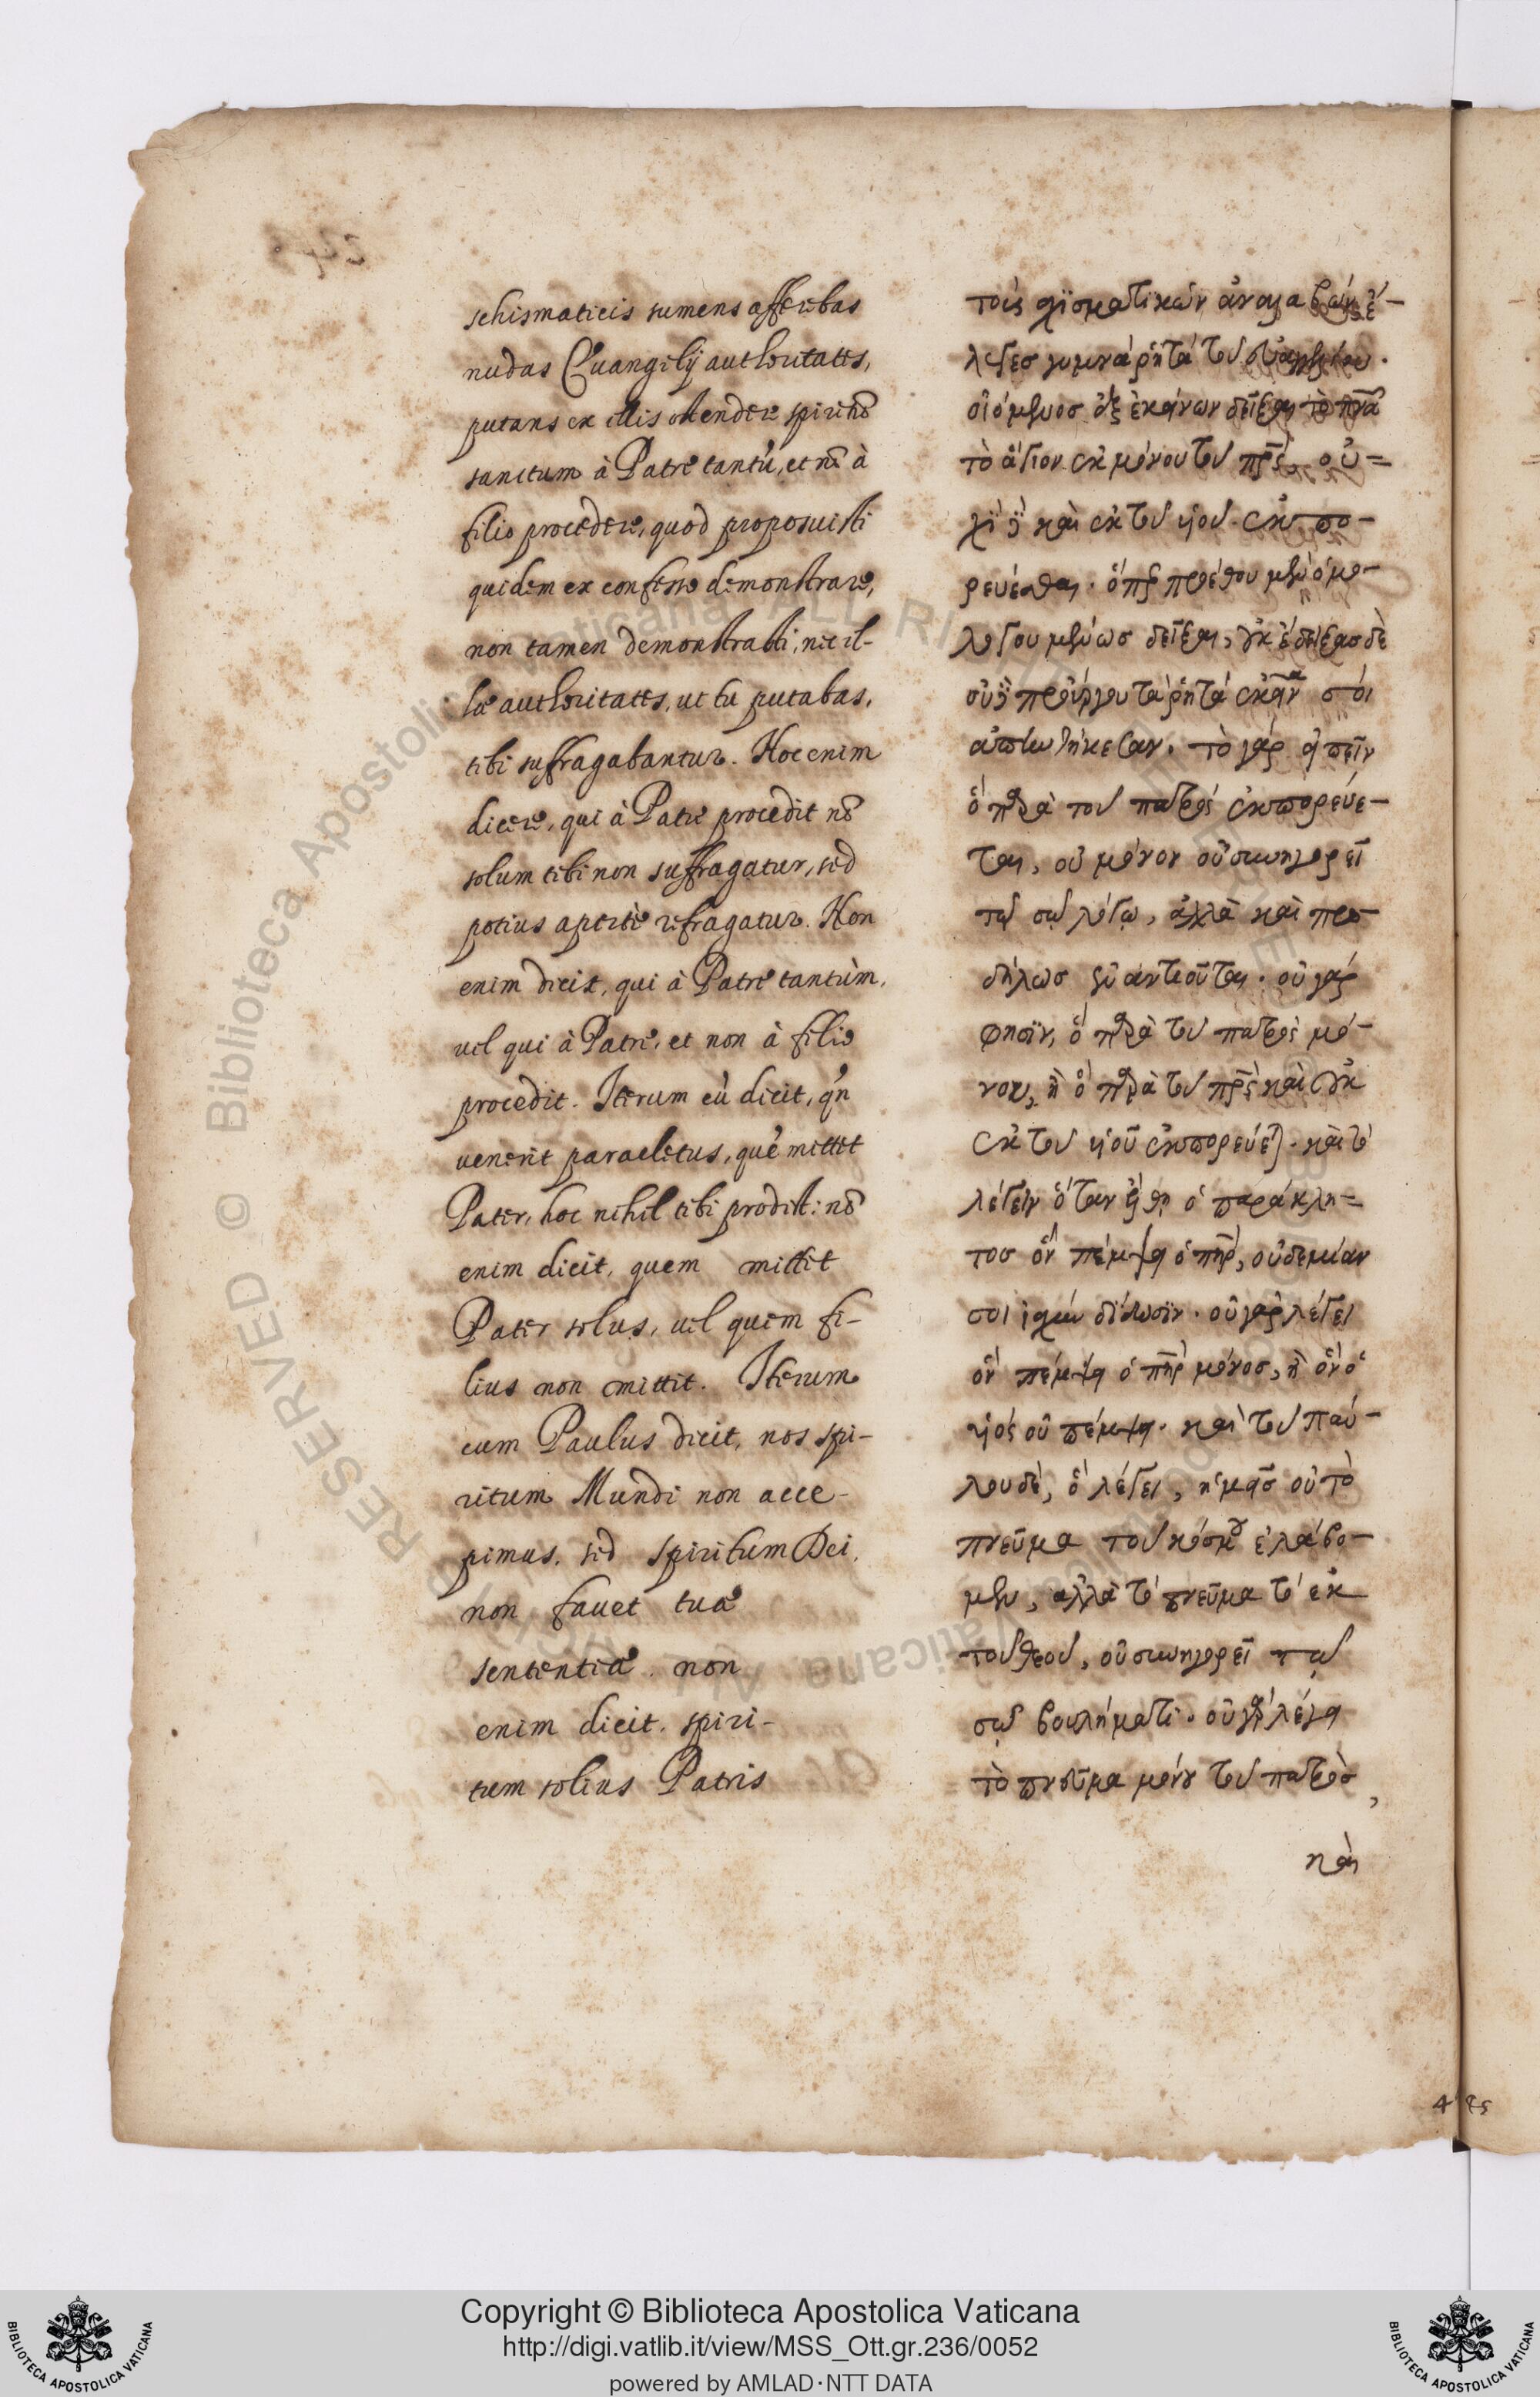 schismaticis sumens afferebas
nudas Euangelij authoritates,
putans ex illis ostendere spiritũ
sanctum à Patre tantũ, et nõ à
filio procedere, quod proposuisti
quidem ex confesso demonstrare,
non tamen demonstrasti, nec il-
læ authoritates, ut tu putabas,
tibi suffragabantur. Hoc enim
dicere, qui à Patre procedit nõ
solum tibi non suffragatur, sed
potius aperte refragatur. Non
enim dicit, qui à Patre tantùm,
uel qui à Patre, et non à filio
procedit. Iterum cũ dicit, qñ
uenerit paracletus, quẽ mittit
Pater, hoc nihil tibi prodest: nõ
enim dicit, quem mittit
Pater solus, uel quem fi-
lius non mittit. Iterum
cum Paulus dicit, nos spi-
ritum Mundi non acce-
pimus, sed spiritum Dei,
non fauet tuæ
sententiæ. non
enim dicit. spiri-
tum solius Patris
τοῖς σχϊσματικῶν ἀναλαβὼν ἔ-
λεγες γυμνὰ ῥητὰ τοῦ εὐαγγελίου.
οἰόμενος ἐξ ἐκείνων δεῖξαι τὸ πνᾶ
τὸ ἅγιον ἐκ μόνου τοῦ πρ̅ς οὐ-
χῒ καὶ ἐκ τοῦ υἱοῦ ἐκπο-
ρεύεσθαι. ὅπερ προέθου μὲν ὁμο-
λογουμένως δεῖξαι, οὐκ ἔδειξας δὲ
τὸ γὰρ εἰπεῖν
ὃ παρὰ τοῦ πατρὸς ἐκπορεύε-
ται, οὐ μόνον οὐ συνηγορεῖ
τῷ σῷ λόγῳ, ἀλλὰ καὶ προ-
δήλως ἐναντιοῦται. οὐ γάρ
φησῒν, ὃ παρὰ τοῦ πατρὸς μό-
νου, ἢ ὃ παρὰ τοῦ πρ̅ς καὶ οὐκ
ἐκ τοῦ υἱοῦ ἐκπορεύεται. καὶ τὸ
λέγειν ὅταν ἔλθῃ ὁ παράκλη-
τος ὃν πέμψει ὁ πη̅ρ, οὐδεμίαν
σοι ἰσχὺν δίδωσϊν. οὐ γὰρ λέγει
ὃν πέμψει ὁ πη̅ρ μόνος, ἢ ὃν ὁ
υἱὸς οὐ πέμψει. καὶ τοῦ παύ-
λου δὲ, ὃ λέγει, ἡμᾶς οὐ τὸ
πνεῦμα τοῦ κόσμου ἐλάβο-
μεν, ἀλλὰ τὸ πνεῦμα τὸ ἐκ
τοῦ θεοῦ, οὐ συνηγορεῖ τῷ
σῷ βουλήματι. οὐ γὰρ λέγει
τὸ πνεῦμα μόνου τοῦ πατρὸς,
καὶ
Copyright © Biblioteca Apostolica Vaticana
http://digi.vatlib.it/view/MSS_Ott.gr.236/0052
powered by AMLAD·NTT DATA
BIBLIOTECA APOSTOLICA VATICANA
BIBLIOTECA APOSTOLICA VATICANA